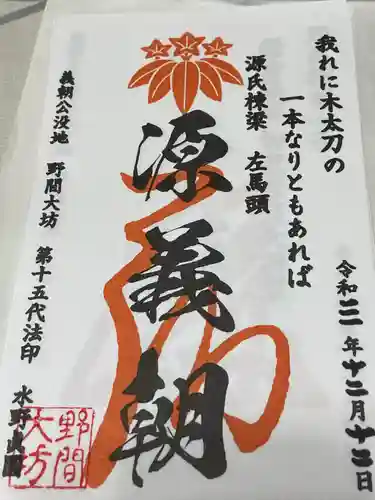 我れに木太刀の
一本なりともあれば
源氏棟梁 左馬頭
源義朝
令和三年十二月十二日
義朝公没地 野間大坊 第十五代法印 水野
野間
大坊